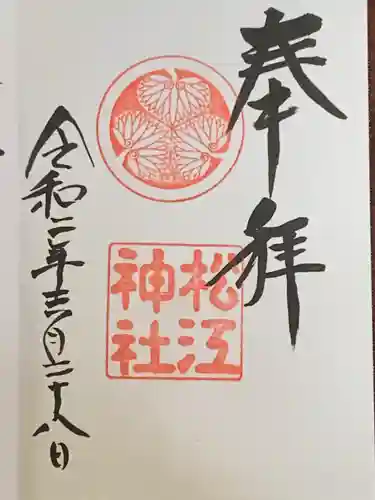 奉拝
松江
神社
令和二年十一月二十八日